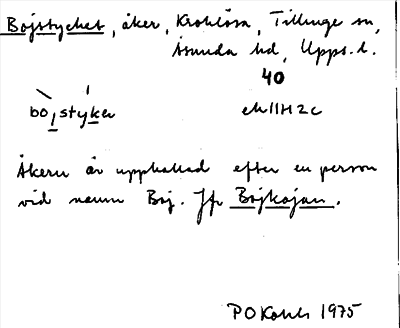 Bojstycket, åker, Kroklösa, Tillinge sn,
Åsunda hd, Upps. l.
40
bojstyker ek11H2c
Åkern är uppkallad efter en person
vid namn Boj. Jfr Bojkojan.
P O 1975